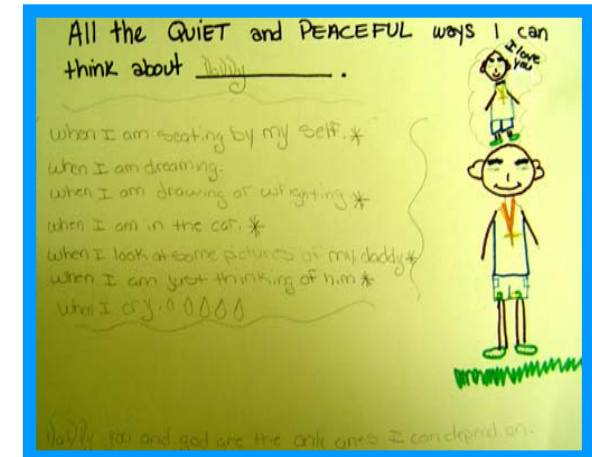 All the QUIET and PEACEFUL ways I can
think about Daddy.
I love
you
when I am seating by my self. *
when I am dreaming.
when I am drawing or wrighting *
when I am in the car. *
when I look at some pictures of my daddy *
when I am just thinking of him *
when I cry.
Daddy you and god are the only ones I can depend on.